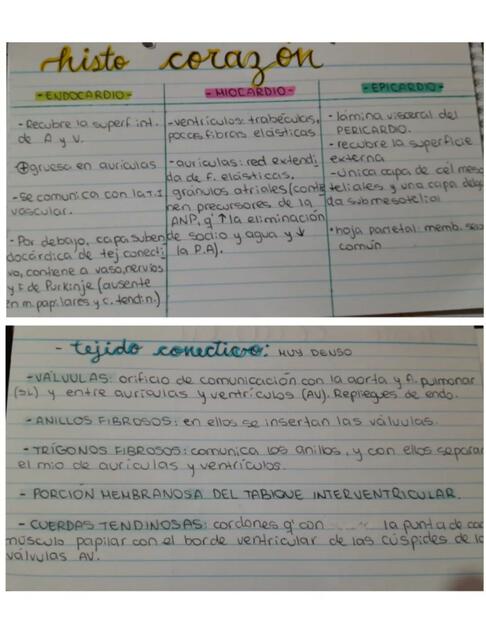 histo corazón
- ENDOCARDIO -
- Recubre la superf int.
de A y V.
⊕ gruesa en aurículas
- Se comunica con la T.I
vascular.
- Por debajo, capa suben
docárdica de tej conecti
vo, contiene a vaso, nervios
y F. de Purkinje (ausente
en m. papilares y c. tendin.)
- MIOCARDIO -
- ventrículos: trabéculas,
pocas fibras elásticas
- aurículas: red extendi
da de F. elásticas,
gránulos atriales (contie
nen precursores de la
ANP, q' ↑ la eliminación
de sodio y agua y ↓
la P.A).
- EPICARDIO -
- lámina visceral del
PERICARDIO.
- recubre la superficie
externa
- única capa de cél meso
teliales y una capa delga
da submesotelial
• hoja parietal: memb.
común
- tejido conectivo: MUY DENSO
- VÁLVULAS: orificio de comunicación con la aorta y A. pulmonar
(SL) y entre aurículas y ventrículos (AV). Repliegues de endo.
- ANILLOS FIBROSOS: en ellos se insertan las válvulas.
- TRÍGONOS FIBROSOS: comunica los anillos, y con ellos separan
el mio de aurículas y ventrículos.
- PORCIÓN MEMBRANOSA DEL TABIQUE INTERVENTRICULAR.
- CUERDAS TENDINOSAS: cordones q' con la punta de cada
músculo papilar con el borde ventricular de las cúspides de la
válvulas AV.